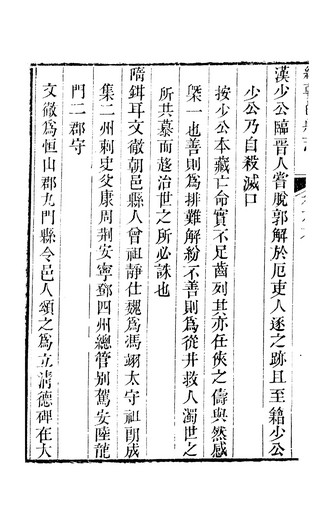 漢少公臨晉人嘗脫郭解於厄吏人逐之跡且至籍少公
少公乃自殺滅口
按少公本藏亡命實不足齒列其亦任俠之儔與然感
槩一也善則爲排難解紛不善則爲從井救人濁世之
所共慕而趍治世之所必誅也
隋鉺耳文徹朝邑縣人曾祖靜仕魏爲馮翊太守祖朗成
集二州刺史父康周荆安寧鄧四州總管别駕安陸龍
門二郡守
文徹爲恒山郡九門縣令邑人頌之爲立清德碑在大